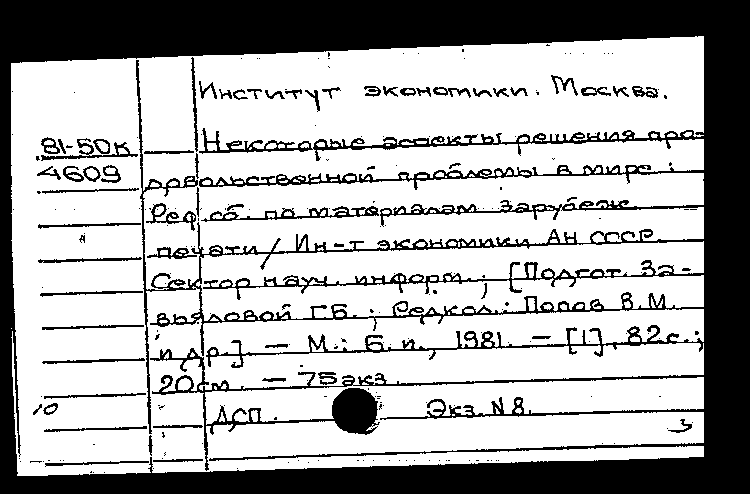 Институт экономики. Москва.
81-50к Некоторые аспекты решения про-
4609 довольственной проблемы в мире :
Реф. сб. по материалам зарубеж.
печати / Ин-т экономики АН СССР.
Сектор науч. информ. ; [Подгот. За-
вьяловой Г.Б. ; Редкол.: Попов В.М.
и др.]. — М.: Б. и., 1981. — [1], 82с.;
20см. — 75экз.
10 ДСП. Экз. N 8.
3